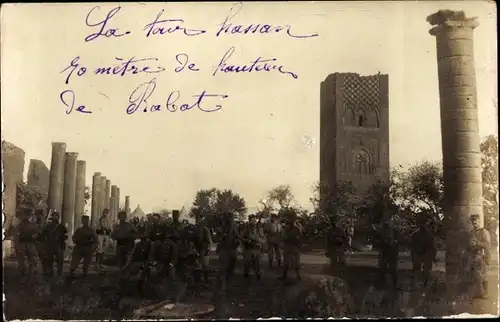 La tour hassan
40 mètre de hauteur
de Rabat